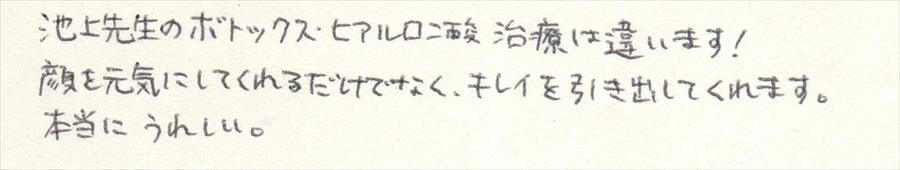 池上先生のボトックス・ヒアルロン酸 治療は違います!
顔を元気にしてくれるだけでなく、キレイを引き出してくれます。
本当に うれしい。